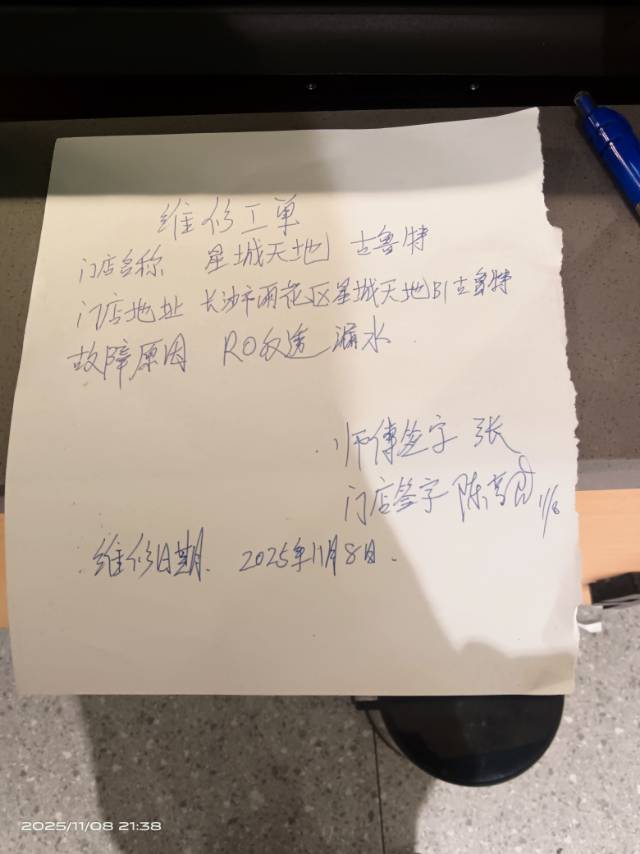 维修工单
门店名称 星城天地 古鲁特
门店地址 长沙市雨花区星城天地B1古鲁特
故障原因 RO反渗 漏水
师傅签字 张
门店签字 陈 11/8
维修日期. 2025年11月8日.
2025/11/08 21:38